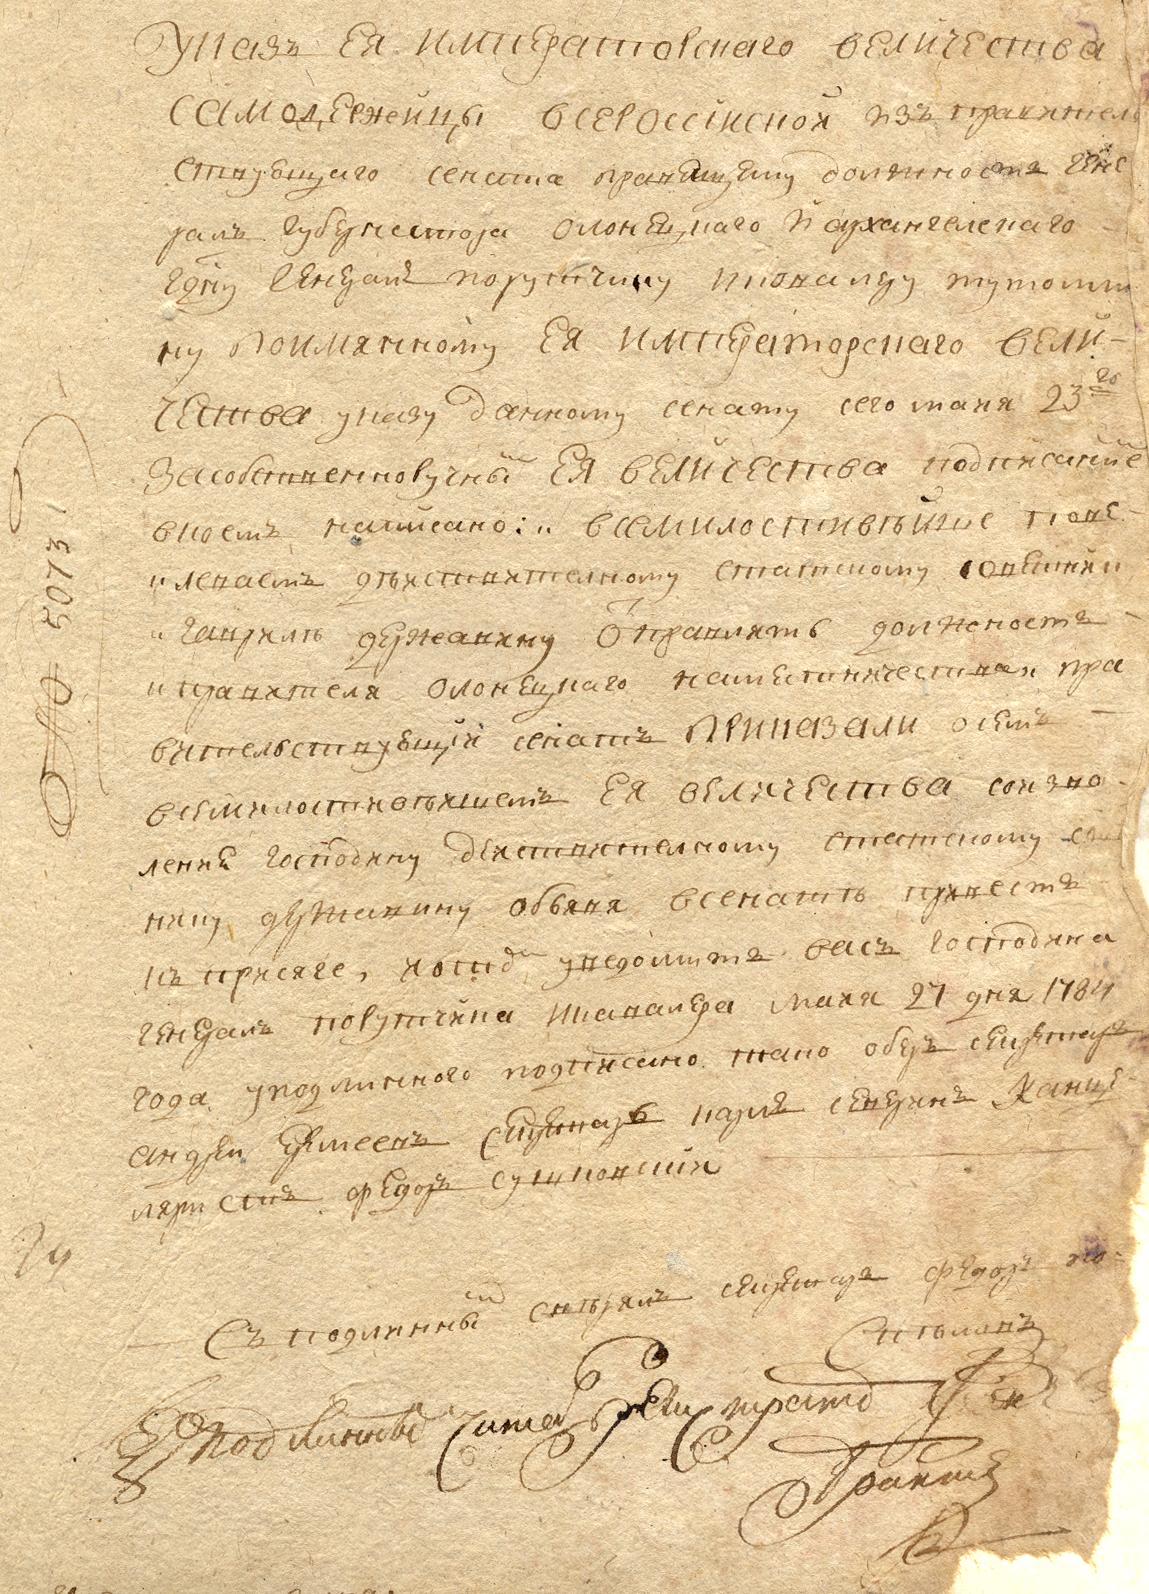 Указъ ЕЯ ИМПЕРАТОРСКАГО ВЕЛИЧЕСТВА
САМОДЕРЖИЦЫ ВСЕРОССІЙСКОЙ изъ правитель
ствующаго сената правящему должность гене
ралъ губернатора олонецкаго и архангелскаго
гдну генералъ порутчику и кавалеру тутолми
ну поимянному ЕЯ ИМПЕРАТОРСКАГО ВЕЛИ
ЧЕСТВА указу данному сенату сего маия 23го
засобственноручнымъ ЕЯ ВЕЛИЧЕСТВА подписаниемъ
вкоемъ написано: „ всемилостивѣйше пове
„ леваемъ дѣиствителному статскому советнику
„ гаврилѣ державину отправлять должность
„ правителя олонецкаго наместничества „ пра
вительствующий сенатъ ПРИКАЗАЛИ осемъ
всемилостивѣишемъ ЕЯ ВЕЛИЧЕСТВА соизво
лении господину действителному статскому
нику державину объявя всенатѣ привесть
къ присяге, и уведомить васъ господина
генералъ порутчика и кавалера маия 27 дня 1784
года уподлинного подписано тако оберъ секретарь
андреи еремеевъ секретарь карлъ северинъ канце
ляристъ федоръ сушковскии
Съ подлиннымъ сверялъ секретарь федоръ
Съ подлиннымъ читалъ регистраторъ
№ 5073